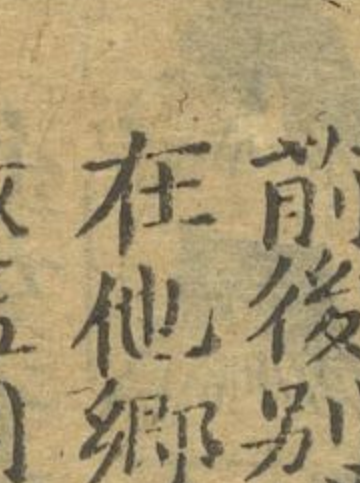 前後別
在他鄉